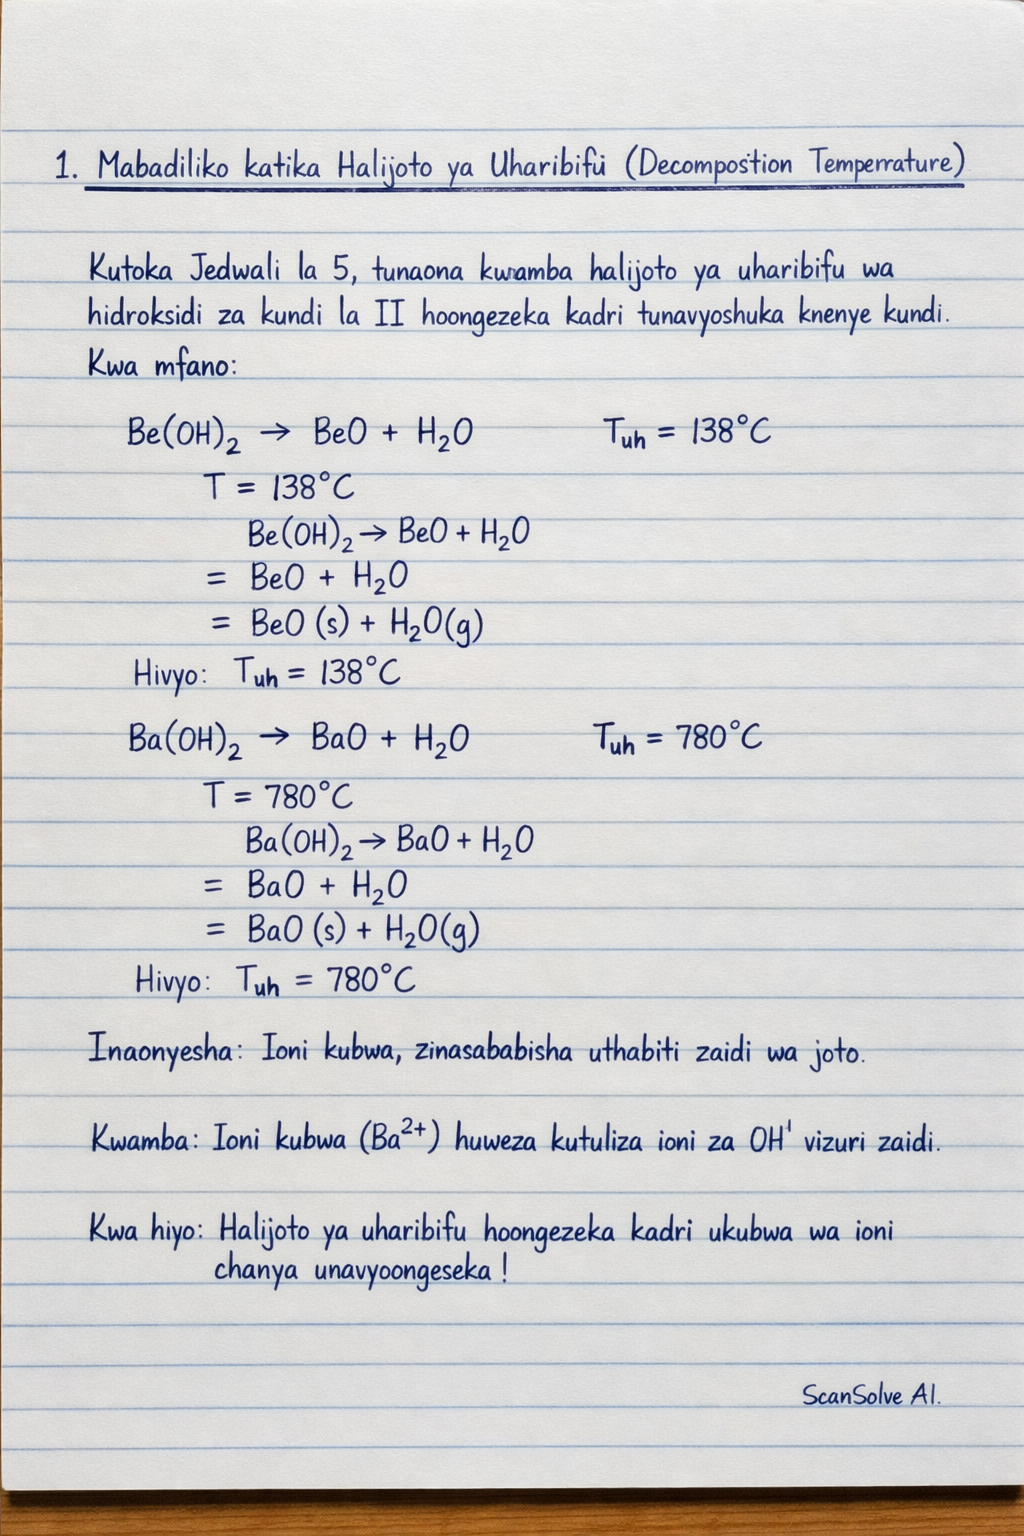 1. Mabadiliko katika Halijoto ya Uharibifu (Decompostion Temperrature)
Kutoka Jedwali la 5, tunaona kwamba halijoto ya uharibifu wa
hidroksidi za kundi la II hoongezeka kadri tunavyoshuka knenye kundi.
Kwa mfano:
Be(OH)₂ → BeO + H₂O Tuh = 138°C
T = 138°C
Be(OH)₂ → BeO + H₂O
= BeO + H₂O
= BeO (s) + H₂O(g)
Hivyo: Tuh = 138°C
Ba(OH)₂ → BaO + H₂O Tuh = 780°C
T = 780°C
Ba(OH)₂ → BaO + H₂O
= BaO + H₂O
= BaO (s) + H₂O(g)
Hivyo: Tuh = 780°C
Inaonyesha: Ioni kubwa, zinasababisha uthabiti zaidi wa joto.
Kwamba: Ioni kubwa (Ba²⁺) huweza kutuliza ioni za OH' vizuri zaidi.
Kwa hiyo: Halijoto ya uharibifu hoongezeka kadri ukubwa wa ioni
chanya unavyoongeseka !
ScanSolve AI.